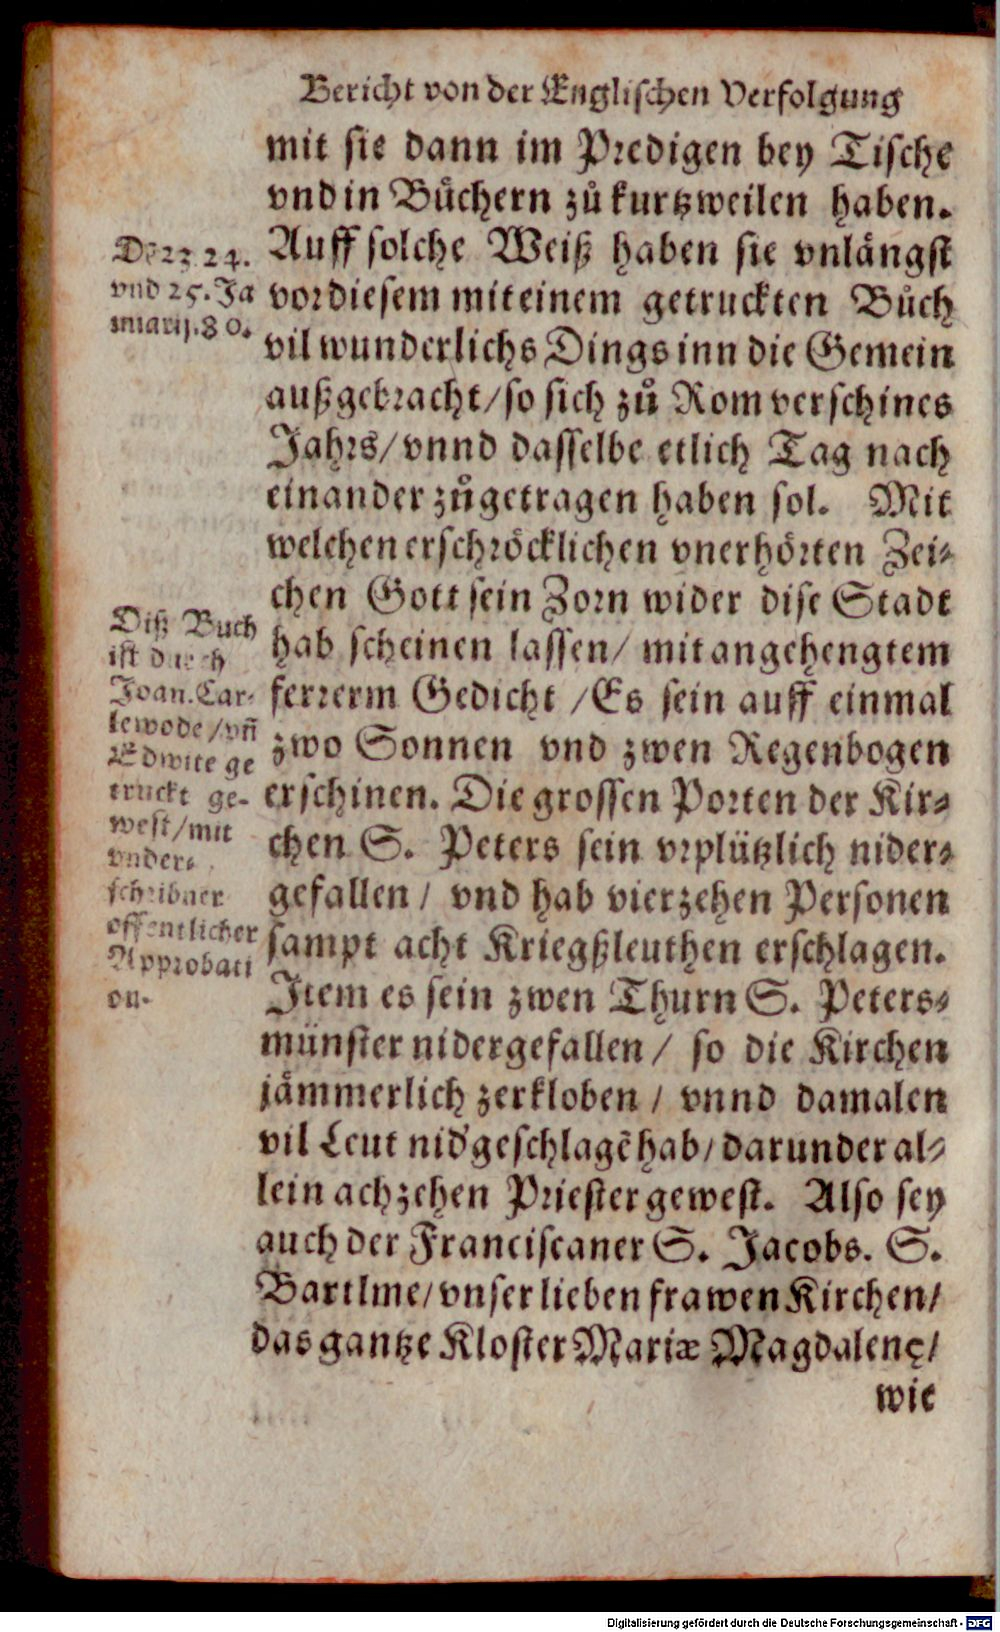 Bericht von der Englischen Verfolgung
mit sie dann im Predigen bey Tische
vnd in Bůchern zů kurtzweilen haben.
Auff solche Weiß haben sie vnlångst
vor diesem mit einem getruckten Bůch
vil wunderlichs Dings inn die Gemein
außgebracht/ so sich zů Rom verschines
Jahrs/ vnnd dasselbe etlich Tag nach
einander zůgetragen haben sol. Mit
welchen erschröcklichen vnerhörten Zei⸗
chen Gott sein Zorn wider dise Stadt
hab scheinen lassen/ mit angehengtem
ferrerm Gedicht /Es sein auff einmal
zwo Sonnen vnd zwen Regenbogen
erschinen. Die grossen Porten der Kir⸗
chen S. Peters sein vrplützlich nider⸗
gefallen/ vnd hab vierzehen Personen
sampt acht Kriegßleuthen erschlagen.
Item es sein zwen Thurn S. Peters⸗
münster nidergefallen/ so die Kirchen
jåmmerlich zerkloben/ vnnd damalen
vil Leut nid'geschlagē hab/ darunder al⸗
lein achzehen Priester gewest. Also sey
auch der Franciscaner S. Jacobs. S.
Bartlme/ vnser lieben frawen Kirchen/
das gantze Kloster Mariæ Magdalenę/
wie
23. 24.
vnd 25. Ja
nuarij.80.
Diß Buch
ist durch
Joan. Car⸗
lewode/ vñ
Edwite ge
truckt ge⸗
west/ mit
vnder⸗
schribner
offentlicher
Approbati
on.
Digitalisierung gefördert durch die Deutsche Forschungsgemeinschaft - DFG